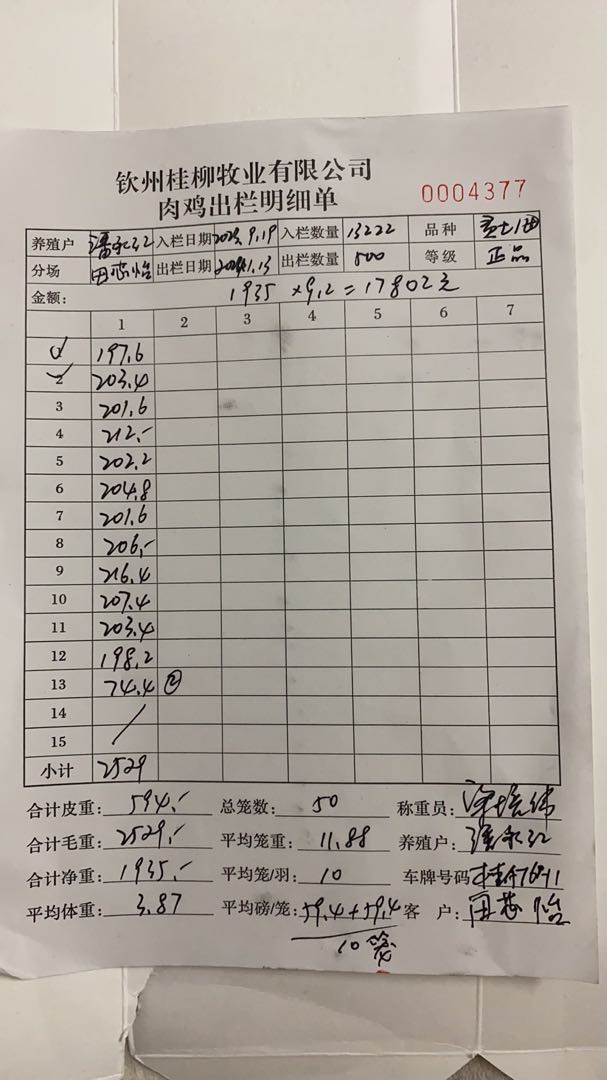 钦州桂柳牧业有限公司
肉鸡出栏明细单
0004377
养殖户 潘永江 入栏日期 2023.9.19 入栏数量 13222 品种
分场 田芯怡 出栏日期 出栏数量 500 等级 正品
金额: 1935 ×9.2 = 17802元
1 2 3 4 5 6 7
1 197.6
2 203.4
3 201.6
4 212.-
5 202.2
6 204.8
7 201.6
8 206.-
9 216.4
10 207.4
11 203.4
12 198.2
13 74.4 ②
14
15
小计 2529
合计皮重: 594.- 总笼数: 50 称重员:
合计毛重: 2529.- 平均笼重: 11.88 养殖户: 潘永江
合计净重: 1935.- 平均笼/羽: 10 车牌号码
平均体重: 3.87 平均磅/笼: 59.4+59.4 客 户: 田芯怡
10笼